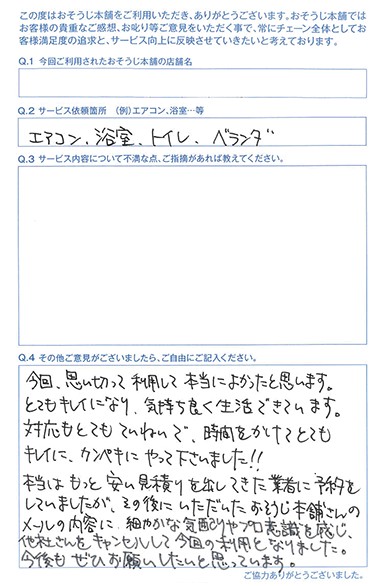 この度はおそうじ本舗をご利用いただき、ありがとうございます。おそうじ本舗では
お客様の貴重なご感想、お叱り等ご意見をいただく事で、常にチェーン全体としてお
客様満足度の追求と、サービス向上に反映させていきたいと考えております。
Q.1 今回ご利用されたおそうじ本舗の店舗名
Q.2 サービス依頼箇所 (例)エアコン、浴室…等
エアコン、浴室、トイレ、ベランダ
Q.3 サービス内容について不満な点、ご指摘があれば教えてください。
Q.4 その他ご意見がございましたら、ご自由にご記入ください。
今回、思い切って利用して本当によかったと思います。
とてもキレイになり、気持ち良く生活できています。
対応もとてもていねいで、時間をかけてとても
キレイに、カンペキにやって下さいました!!
本当はもっと安い見積りを出してきた業者に予約を
していましたが、その後にいただいたおそうじ本舗さんの
メールの内容に細やかな気配りやプロ意識を感じ、
他社さんをキャンセルして今回の利用となりました。
今後もぜひお願いしたいと思っています。
ご協力ありがとうございました。